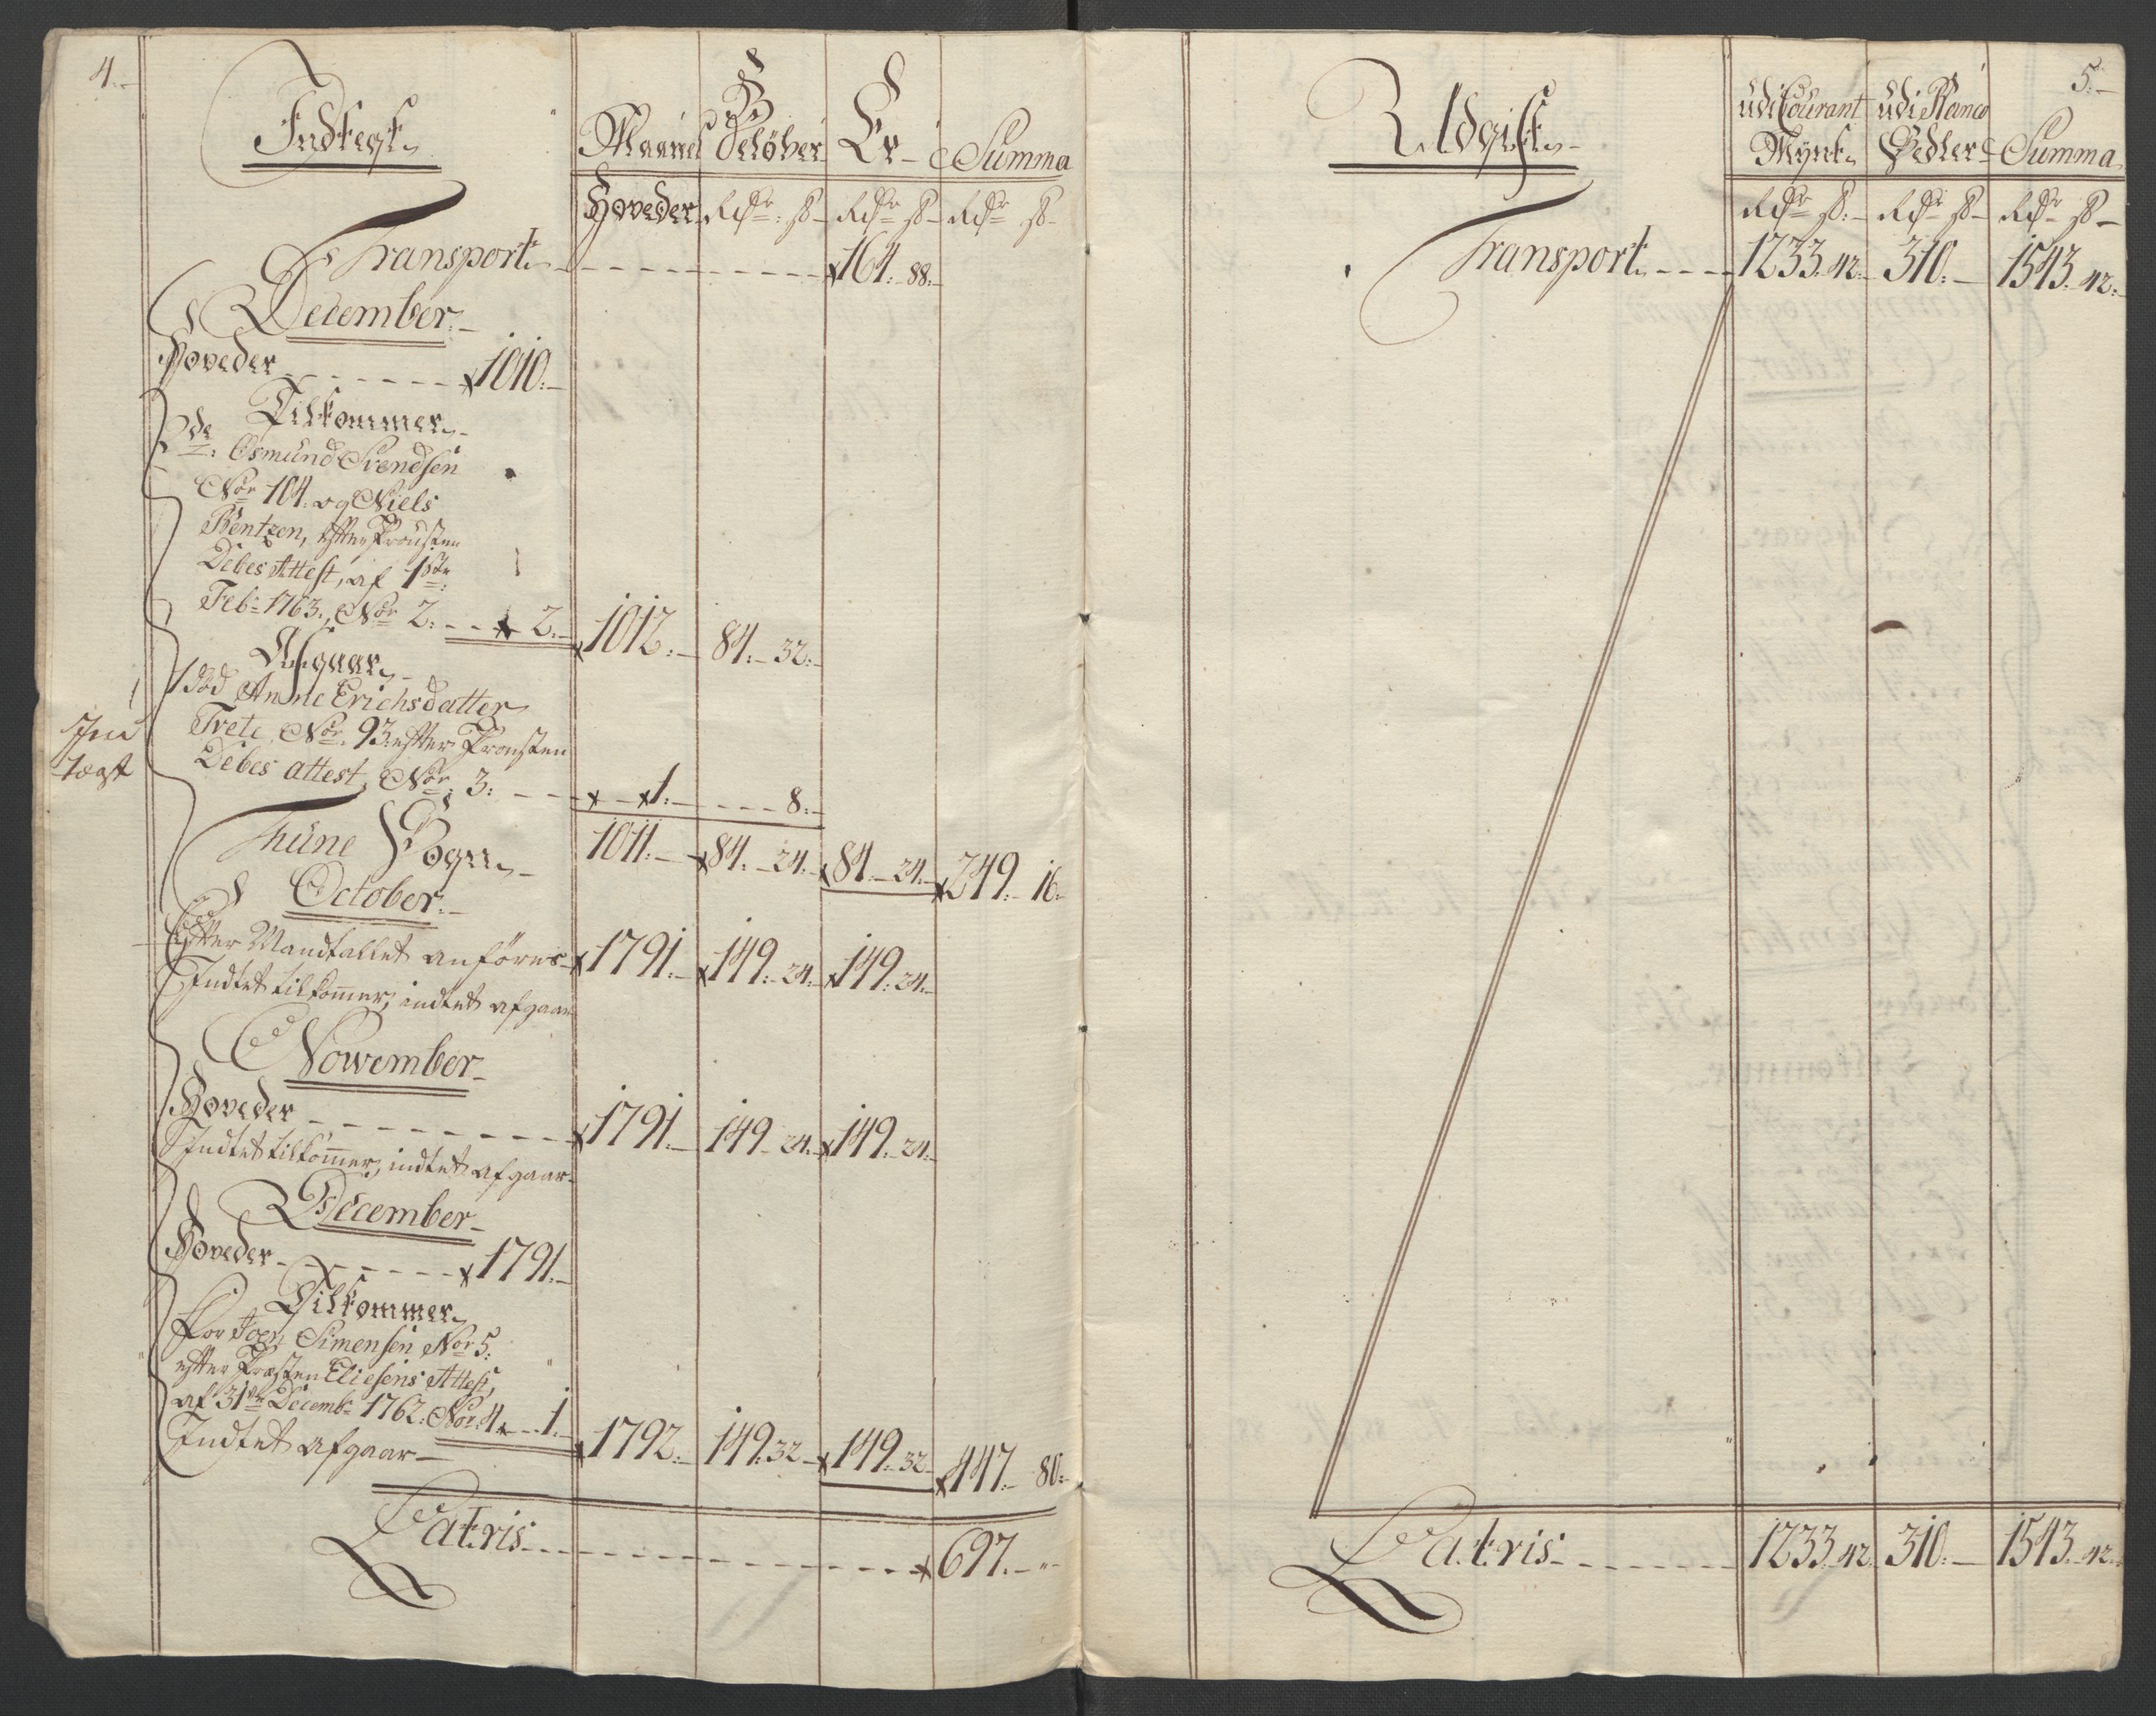 4.-
Indtegt
Maanets Beløber Er Summa
Hoveder Rdr: ß- Rdr ß- Rdr ß-
Transport - - - - - 164.- 88:-
December.-
Hoveder - - - - - 1010:-
Tilkommer
Osmund Svendsen
Nor 104. og Niels
Bentzen, efter Prousten
Debes Attest, af 1ste
Feb: 1763., Nor 2: - - 2:- 1012.- 84.- 32:-
Afgaar
1 död Anne Erichsdatter
Trete Nor. 93 efter Prousten
Debes attest, Nor: 3: - - - 1:- - - - 8:-
1011:- 84.- 24.- 84.- 24.- 249.- 16:-
Thune Sogn
October.-
Efter Mandtallet anföres 1791.- 149.- 24:- 149.- 24.-
Indtet tilkom̄er, indtet afgaar
November
Hoveder - - - - - 1791.- 149.- 24.- 149.- 24:-
Indtet tilkom̄er, indtet afgaar.
December
Hoveder - - - - - 1791.-
Tilkommer
For Joen Simensen Nor 5.
efter Præsten Eliesens Attest,
af 31te Decemb: 1762. Nor. 4 - - 1.- 1792.- 149. 32- 149. 32- 447.- 80:-
Indtet afgaar-
Latris - - - - - 697.- "-
5:-
Udgift
udi Courant Mynt udi Banco Sedler Summa
Rdr ß:- Rdr ß- Rdr ß-
Transport - - - 1233. 42:- 310:- 1543. 42:-
Latris - - - - - 1233. 42. 310:- 1543.- 42:-